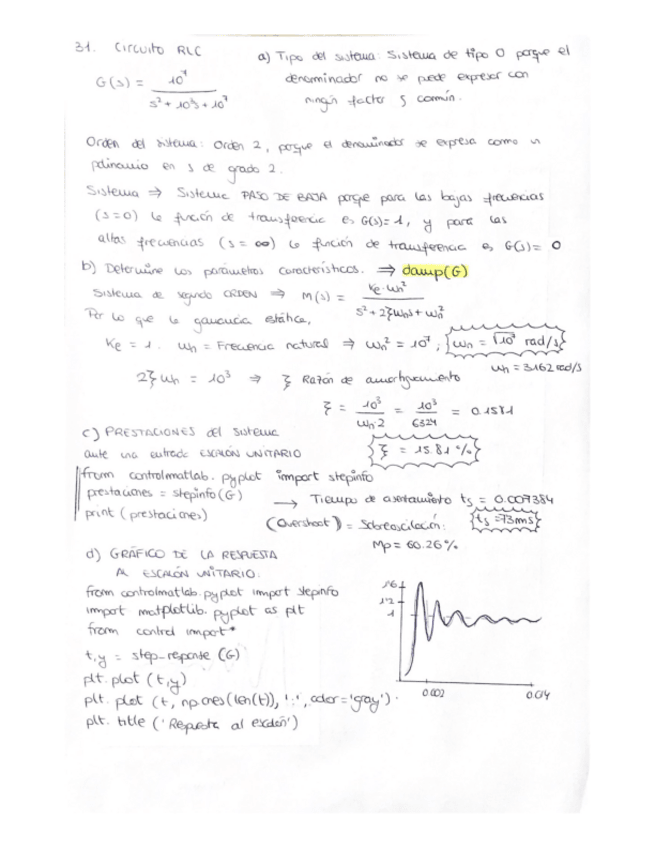 31. Circuito RLC
a) Tipo del sistema: Sistema de tipo 0 porque el
denominador no se puede expresar con
ningún factor s común.
G(s) = 10⁷ / (s² + 10³s + 10⁷)
Orden del sistema: Orden 2, porque el denominador se expresa como un
polinomio en s de grado 2.
Sistema ⇒ Sistema PASO DE BAJA porque para las bajas frecuencias
(s=0) la función de transferencia es G(s)=1, y para las
altas frecuencias (s = ∞) la función de transferencia es G(s)= 0
b) Determine los parámetros característicos. ⇒ damp(G)
Sistema de segundo ORDEN ⇒ M(s) = Ke·ωn² / (s² + 2ξωns + ωn²)
Por lo que la ganancia estática,
Ke = 1. ωn = Frecuencia natural ⇒ ωn² = 10⁷; ωn = √10⁷ rad/s
ωn = 3162 rad/s
2ξωn = 10³ ⇒ ξ Razón de amortiguamiento
ξ = 10³ / (ωn·2) = 10³ / 6324 = 0.1581
ξ = 15.81 %
c) PRESTACIONES del sistema
ante una entrada ESCALÓN UNITARIO
from controlmatlab.pyplot import stepinfo
prestaciones = stepinfo(G)
print (prestaciones)
→ Tiempo de asentamiento ts = 0.007384
ts = 73ms
(Overshoot) = Sobreoscilación:
Mp = 60.26%
d) GRÁFICO DE LA RESPUESTA
AL ESCALÓN UNITARIO.
from controlmatlab.pyplot import stepinfo
import matplotlib.pyplot as plt
from control import*
t,y = step_response (G)
plt.plot (t,y)
plt.plot (t, np.ones(len(t)), ':', color='gray').
plt.title ('Respuesta al escalón')
1'6
1'2
1
0.002
0.014